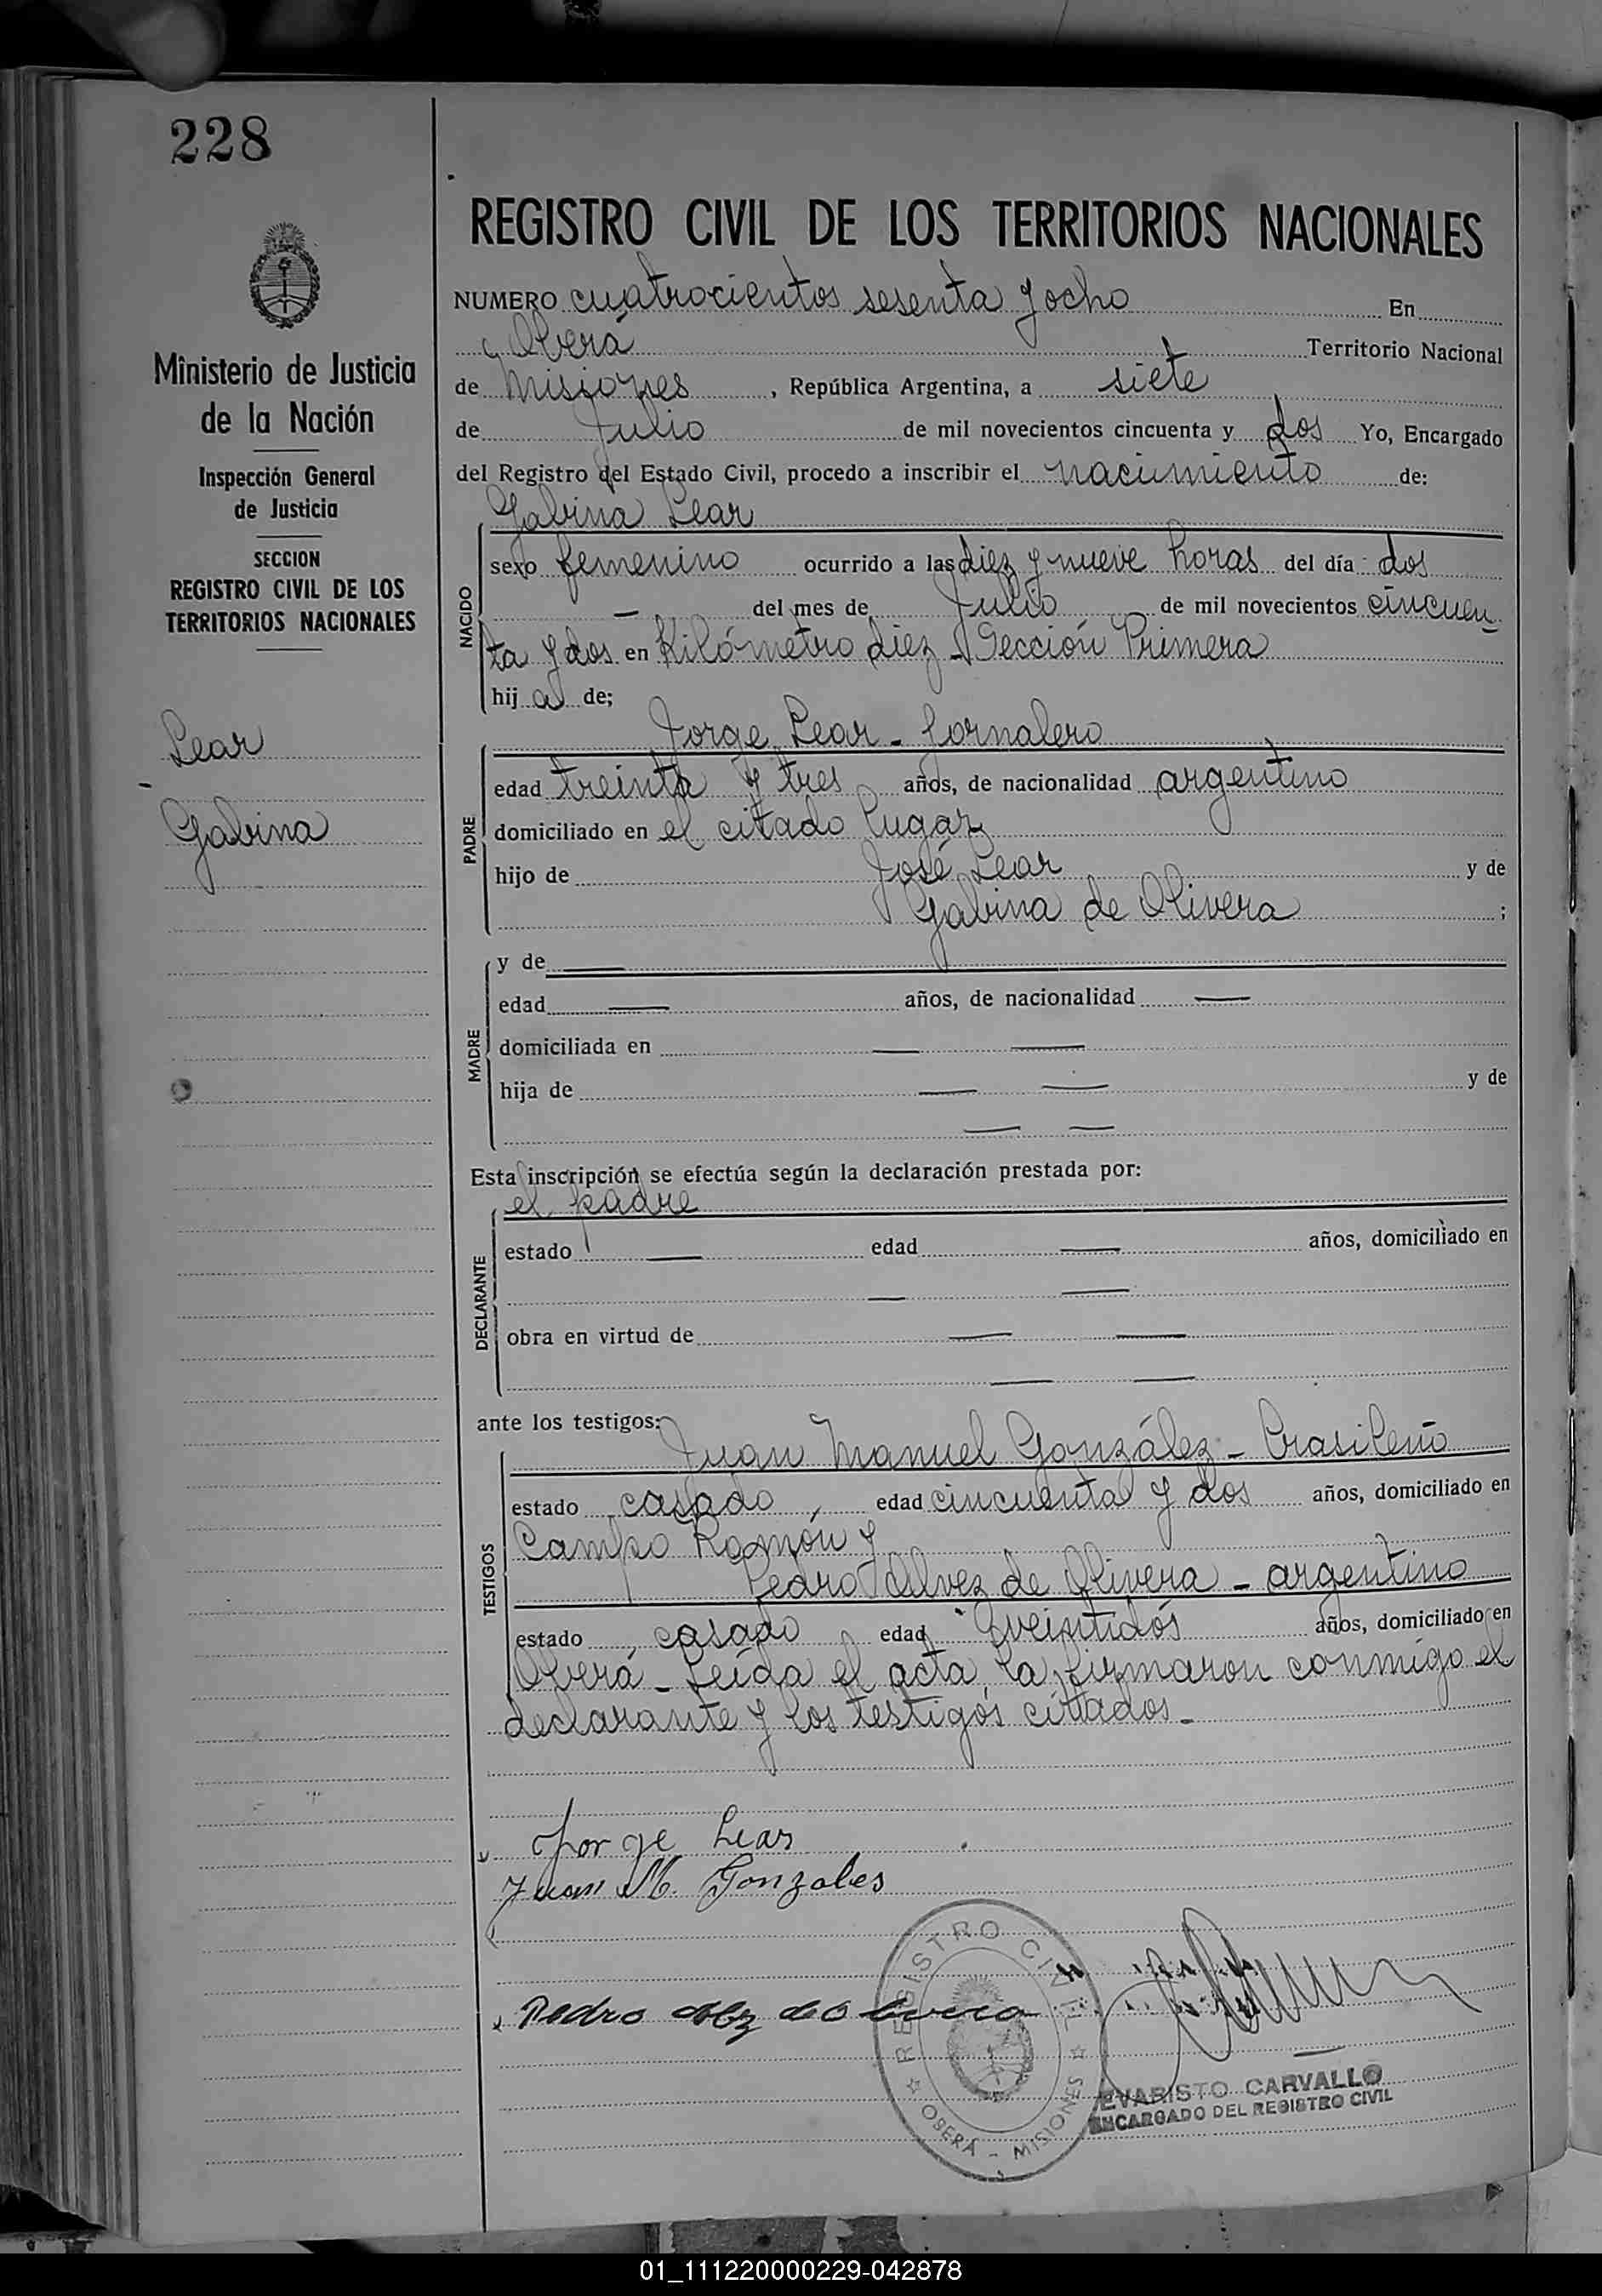 228
Ministerio de Justicia
de la Nación
Inspección General
de Justicia
SECCION
REGISTRO CIVIL DE LOS
TERRITORIOS NACIONALES
Lear
Gabina
REGISTRO CIVIL DE LOS TERRITORIOS NACIONALES
NUMERO cuatrocientos sesenta y ocho En
Oberá Territorio Nacional
de Misiones, República Argentina, a siete
de Julio de mil novecientos cincuenta y dos Yo, Encargado
del Registro del Estado Civil, procedo a inscribir el nacimiento de:
Gabina Lear
NACIDO
sexo femenino ocurrido a las diez y nueve horas del día dos
— del mes de Julio de mil novecientos cincuen-
ta y dos en Kilómetro diez - Sección Primera
hija de;
Jorge Lear - Jornalero
PADRE
edad treinta y tres años, de nacionalidad argentino
domiciliado en el citado lugar
hijo de José Lear y de
Gabina de Olivera ;
MADRE
y de —
edad — años, de nacionalidad —
domiciliada en — —
hija de — — y de
— —
Esta inscripción se efectúa según la declaración prestada por:
el padre
DECLARANTE
estado — edad — años, domiciliado en
— —
obra en virtud de — —
— —
ante los testigos:
Juan Manuel González - brasileño
TESTIGOS
estado casado, edad cincuenta y dos años, domiciliado en
Campo Ramón y
Pedro Alvez de Olivera - argentino
estado casado edad veintidós años, domiciliado en
Oberá - Leída el acta, la firmaron conmigo el
declarante y los testigos citados.-
Jorge Lear
Juan M. Gonzales
Pedro Alvz de Olivera
REGISTRO CIVIL
OBERÁ - MISIONES
EVARISTO CARVALLO
ENCARGADO DEL REGISTRO CIVIL
01_111220000229-042878